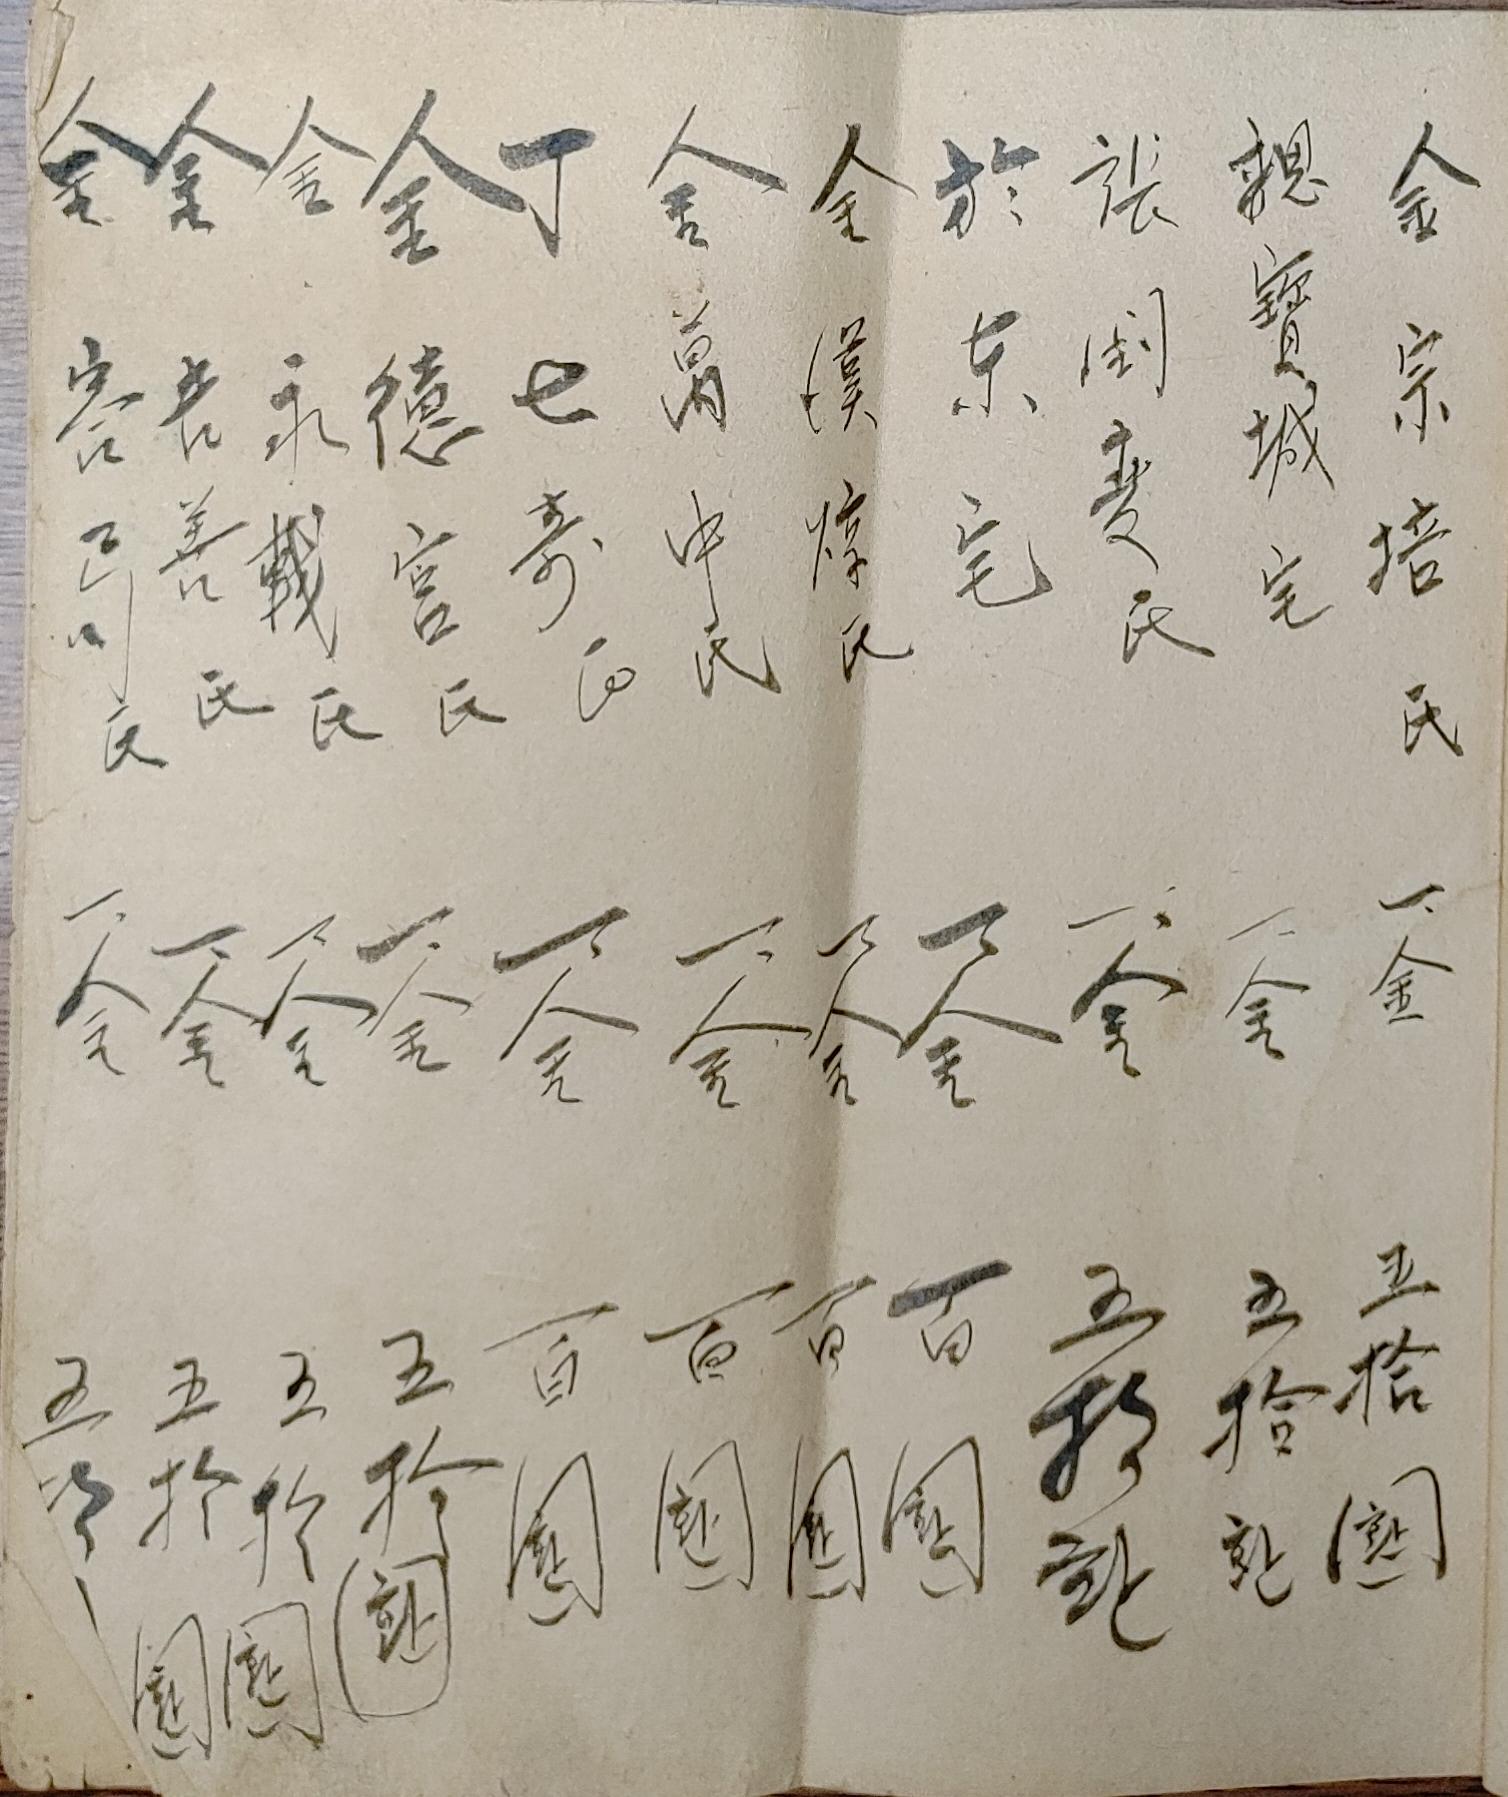 金宗培氏 一金 五拾圜
親寶城宅 一金 五拾환
張閏變氏 一金 五拾환
於东宅 一金 百圜
金漢惇氏 一金 百圜
金萬中氏 一金 百圜
丁七寿氏 一金 百圜
金德宮氏 一金 五拾환
金永載氏 一金 五拾圜
金吉善氏 一金 五拾圜
金容 氏 一金 五